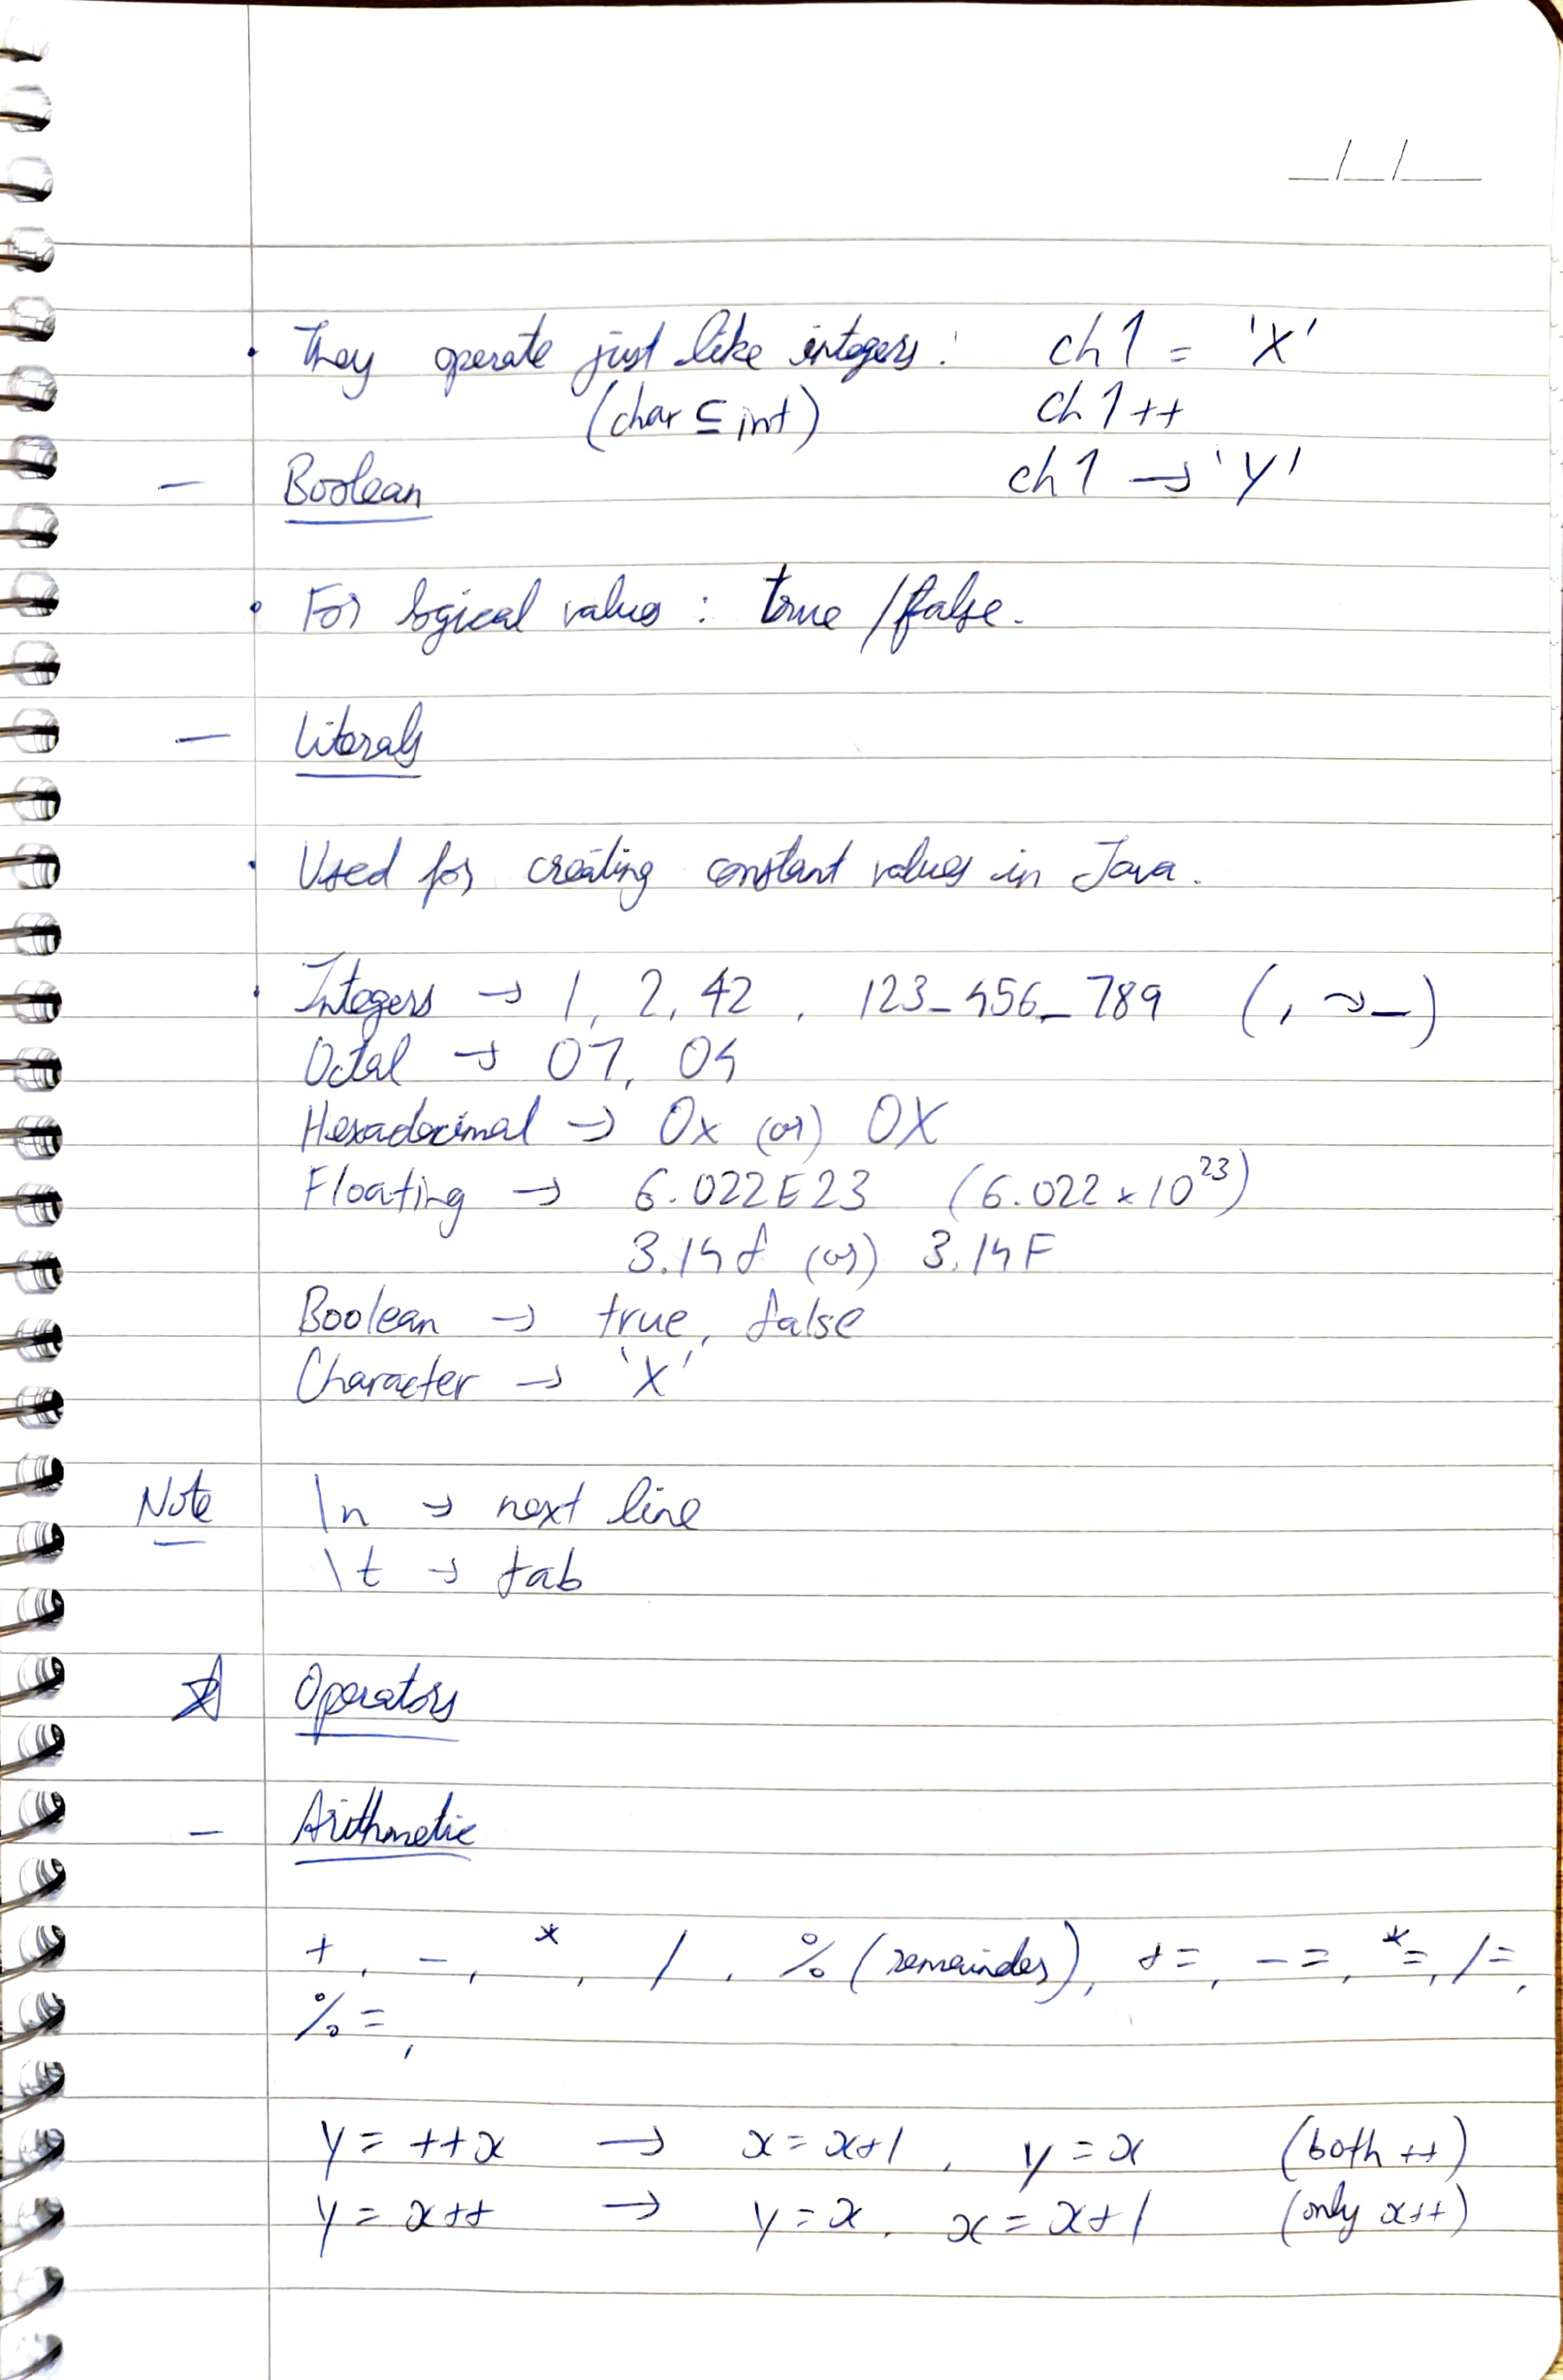 _/_/_
• They operate just like integers: ch1 = 'X'
(char ⊆ int) ch1++
– Boolean ch1 → 'Y'
• For logical values : true / false.
– Literals
• Used for creating constant values in Java.
• Integers → 1, 2, 42, 123_456_789 (, → _)
Octal → 07, 04
Hexadecimal → 0x (or) 0X
Floating → 6.022E23 (6.022 × 10²³)
3.14f (or) 3.14F
Boolean → true, false
Character → 'X'
Note \n → next line
\t → tab
☆ Operators
– Arithmetic
+, -, *, /, % (remainder), +=, -=, *=, /=,
%=,
y = ++x → x = x+1, y = x (both ++)
y = x++ → y = x, x = x+1 (only x++)